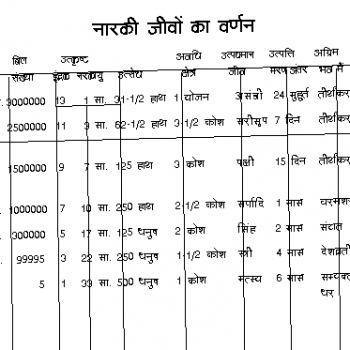 नारकी जीवों का वर्णन
बिल उत्कृष्ट अवधि उत्पद्यमान उत्पत्ति अग्रिम
संख्या इंद्रक नरकायु उत्सेध क्षेत्र जीव मरण अंतर भव में
3000000 13 1 सा. 31-1/2 हाथ 1 योजन असंज्ञी 24 मुहूर्त तीर्थंकर
2500000 11 3 सा. 62-1/2 हाथ 3-1/2 कोश सरीसृप 7 दिन तीर्थंकर
1500000 9 7 सा. 125 हाथ 3 कोश पक्षी 15 दिन तीर्थंकर
1000000 7 10 सा. 250 हाथ 2-1/2 कोश सर्पादि 1 मास चरमशरी
300000 5 17 सा. 125 धनुष 2 कोश सिंह 2 मास संयत
99995 3 22 सा. 250 धनुष 1-1/2 कोश स्त्री 4 मास देशव्रती
5 1 33 सा. 500 धनुष 1 कोश मत्स्य 6 मास सम्यक्त्व
धर